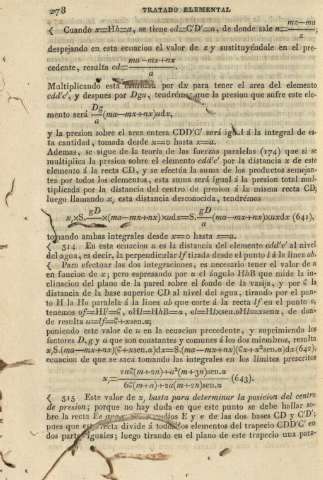 278 TRATADO ELEMENTAL
ma—mu
Cuando x=Hh=a, se tiene cd=C'D'=n, de donde sale n=
despejando en esta ecuacion el valor de z y sustituyéndole en el pre-
ma-mx+nx
cedente, resulta cd=
a
Multiplicando esta por dx para tener el area del elemento
cdd'c', y despues por Dgu, tendrémos que la presion que sufre este ele-
mento será Dg/a (ma—mx+nx)udx,
y la presion sobre el area entera CDD'C' será igual á la integral de es-
ta cantidad, tomada desde x=0 hasta x=a.
Ademas, se sigue de la teoría de las fuerzas paralelas (174) que si se
multiplica la presion sobre el elemento cdd'c' por la distancia x de este
elemento á la recta CD, y se efectúa la suma de los productos semejan-
tes por todos los elementos, esta suma será igual á la presion total mul-
tiplicada por la distancia del centro de presion á la misma recta CD;
luego llamando x, esta distancia desconocida, tendrémos
x,×S. gD/a ×(ma—mx+nx)×udx=S. gD/a (ma—mx+nx)xuxdx (641),
tomando ambas integrales desde x=0 hasta x=a.
514 En esta ecuacion u es la distancia del elemento cdd'c' al nivel
del agua, es decir, la perpendicular If tirada desde el punto I á la linea ab.
Para efectuar las dos integraciones, es necesario tener el valor de u
en funcion de x; pero espresando por α el ángulo HhB que mide la in-
clinacion del plano de la pared sobre el fondo de la vasija, y por 6 la
distancia de la base superior CD al nivel del agua, tirando por el pun-
to H la Ho paralela á la linea ab que corte á la recta If en el punto o,
tenemos of=HF=6, oHI=HhB=α, oI=HI×sen.oHI=xsen.α, de don-
de resulta u=If=6+xsen.α;
poniendo este valor de u en la ecuacion precedente, y suprimiendo los
factores D, g y a que son constantes y comunes á los dos miembros, resulta
x,S.(ma—mx+nx)(6+xsen.α)dx=S.(ma—mx+nx)(6x+x²sen.α)dx (642);
ecuacion de que se saca tomando las integrales en los límites prescritos
x,= (643).
515 Este valor de x, basta para determinar la posicion del centro
de presion; porque no hay duda en que este punto se debe hallar so-
bre la recta E y e de las dos bases CD y C'D';
pues que recta divide á todos los elementos del trapecio CDD'C' en
dos partes iguales; luego tirando en el plano de este trapecio una para-